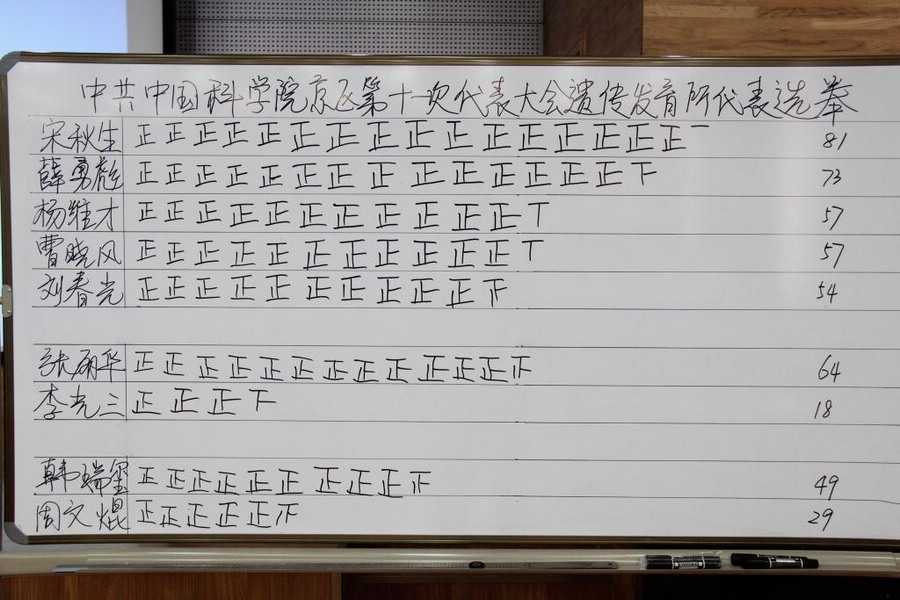 中共中国科学院京区第十一次代表大会遗传发育所代表选举
宋秋生 正正正正正正正正正正正正正正正正一 81
薛勇彪 正正正正正正正正正正正正正正下 73
杨维才 正正正正正正正正正正正丅 57
曹晓风 正正正正正正正正正正正丅 57
刘春光 正正正正正正正正正正 54
张丽华 正正正正正正正正正正正正 64
李光三 正正正下 18
韩瑞玺 正正正正正正正正正 49
周文焜 正正正正正 29